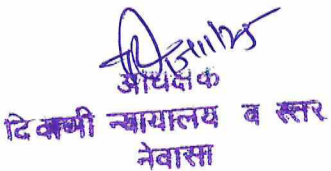 अधिक्षक
दिवाणी न्यायालय व स्तर
नेवासा